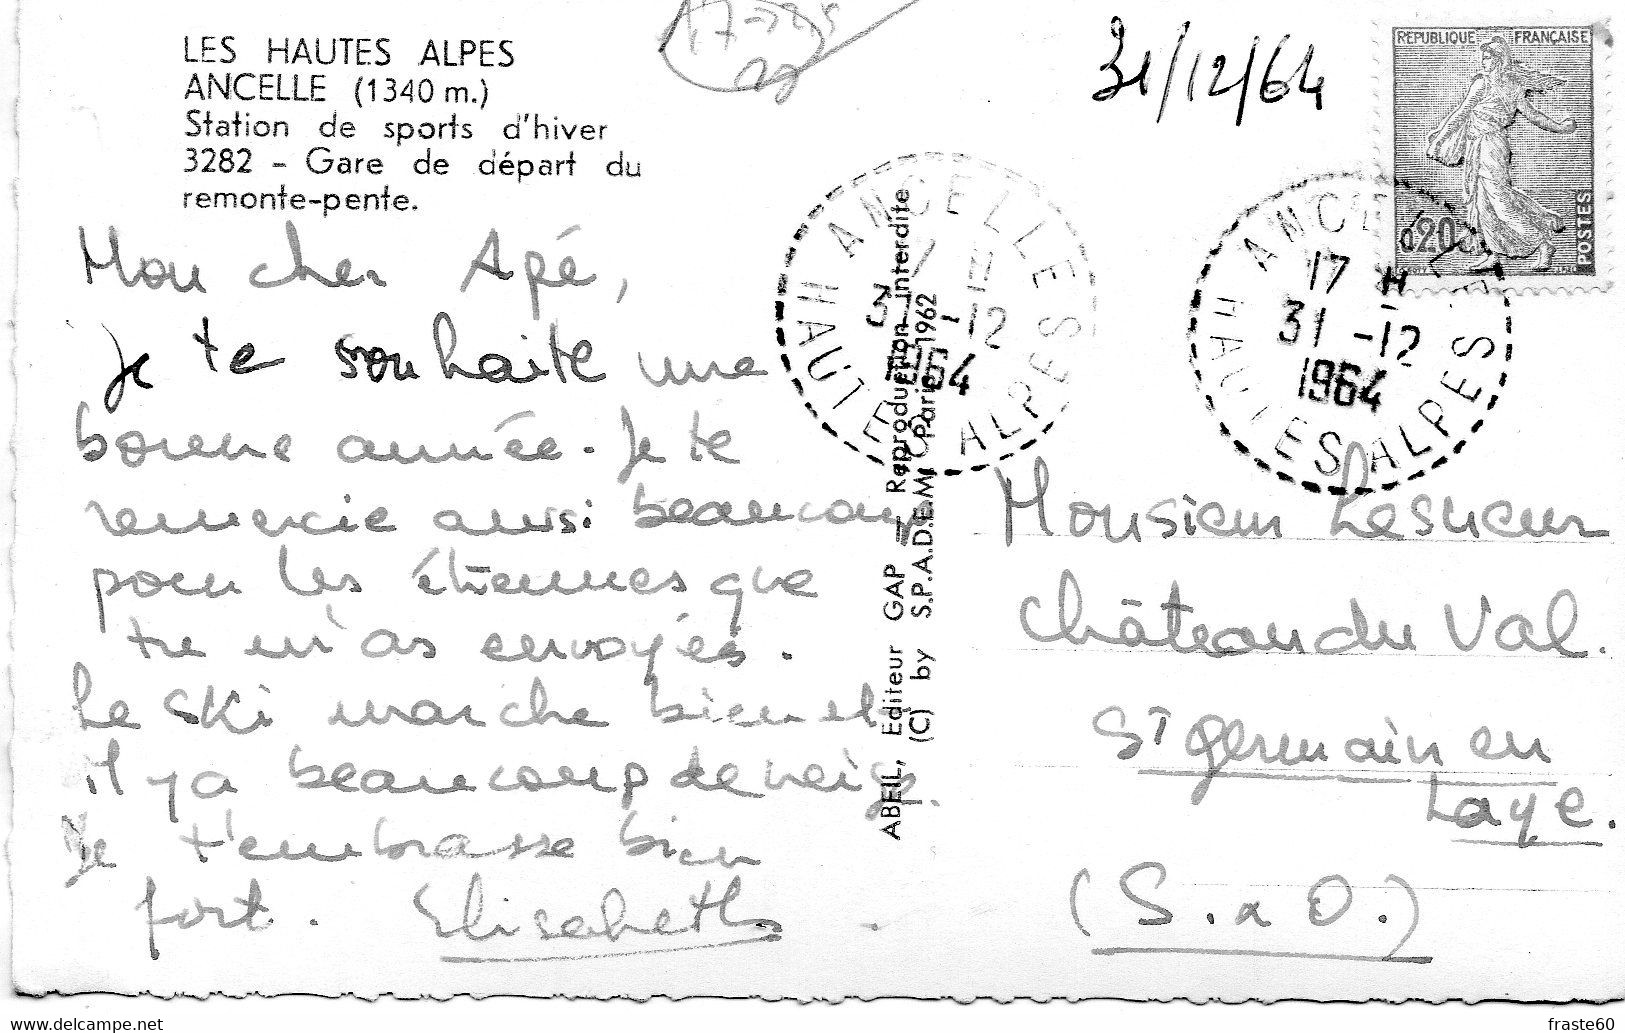 LES HAUTES ALPES
ANCELLE (1340 m.)
Station de sports d'hiver
3282 - Gare de départ du
remonte-pente.
31/12/64
REPUBLIQUE FRANÇAISE
0,20
POSTES
ANCELLE
17 H
31 -12
1964
HAUTES ALPES
ANCELLE
17 H
31 -12
1964
HAUTES ALPES
Mon cher Apé,
je te souhaite une
bonne année. Je te
remercie aussi beaucoup
pour les étrennes que
tu m'as envoyées.
Le ski marche bien et
il y a beaucoup de neige.
Je t'embrasse bien
fort. Elisabeth.
ABEL, Editeur GAP — Reproduction interdite
(C) by S.P.A.D.E.M. Paris 1962
Monsieur Lesueur
Château du Val.
St germain en
Laye.
(S. & O.)
www.delcampe.net
fraste60